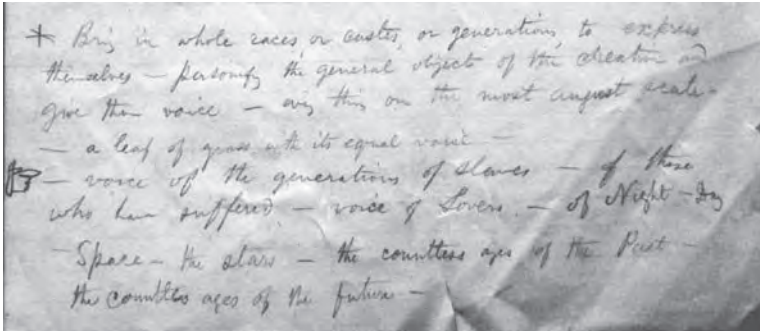 + Bring in whole races, or castes, or generations, to express
themselves — personify the general objects of the creation and
give them voice — every thing on the most august scale —
— a leaf of grass, with its equal voice —
— voice of the generations of slaves — of those
who have suffered — voice of Lovers — of Night — Day
— Space — the stars — the countless ages of the Past —
the countless ages of the future —